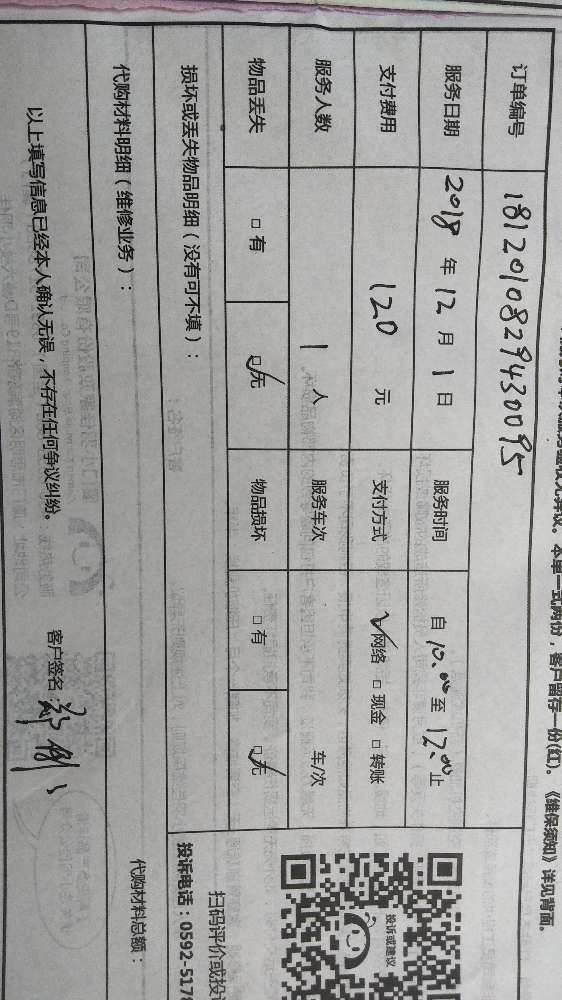 本单一式两份，客户留存一份(红)。《维保须知》详见背面。
订单编号 1812010829430095
服务日期 2018 年 12 月 1 日 服务时间 自 10:00 至 12:00 止
支付费用 120 元 支付方式 ☑网络 □现金 □转账
服务人数 1 人 服务车次 车/次
物品丢失 □有 ☑无 物品损坏 □有 ☑无
投诉或建议
损坏或丢失物品明细（没有可不填）：
扫码评价或投
投诉电话：0592-5178
代购材料明细（维修业务）：
代购材料总额：
以上填写信息已经本人确认无误，不存在任何争议纠纷。 客户签名：